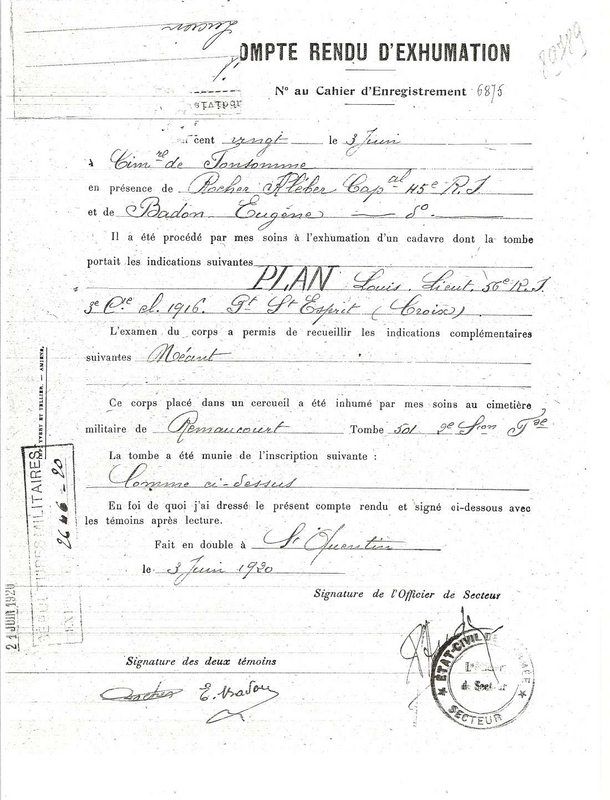 OMPTE RENDU D'EXHUMATION
Nº au Cahier d'Enregistrement 6875
cent vingt le 3 Juin
à Cim^re de Fonsomme
en présence de Rocher Kléber Cap^al 45e R.I
et de Badon Eugène — d°
Il a été procédé par mes soins à l'exhumation d'un cadavre dont la tombe
portait les indications suivantes
PLAN Louis. Lieut. 56e R.I.
3e Cie cl. 1916. Pt St Esprit (Croix)
L'examen du corps a permis de recueillir les indications complémentaires
suivantes Néant
Ce corps placé dans un cercueil a été inhumé par mes soins au cimetière
militaire de Remaucourt Tombe 501
La tombe a été munie de l'inscription suivante :
Comme ci-dessus
En foi de quoi j'ai dressé le présent compte rendu et signé ci-dessous avec
les témoins après lecture.
Fait en double à St Quentin
le 3 Juin 1920
Signature de l'Officier de Secteur
Signature des deux témoins
Rocher E. Badon
ÉTAT-CIVIL
de Secteur
SECTEUR
YVERT ET TELLIER. — AMIENS.
MILITAIRES
2646-20
21 JUIN 1920